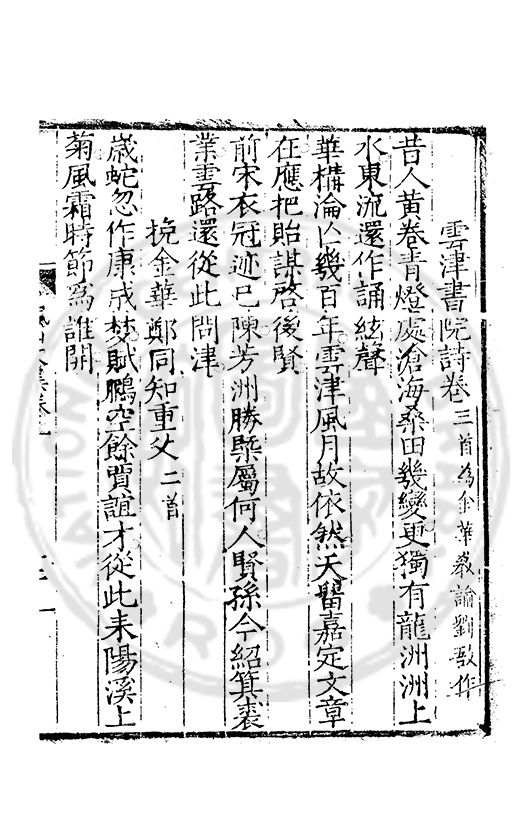 雲津書院詩卷三首為金華教諭劉敬作
昔人黃卷青燈處滄海桑田幾變更獨有龍洲洲上
水東流還作誦絃聲
華構淪亡幾百年雲津風月故依然天留嘉定文章
在應把貽謀啓後賢
前宋衣冠迹已陳芳洲勝槩屬何人賢孫今紹箕裘
業雲路還從此問津
挽金華鄭同知重父二首
歲蛇忽作康成夢賦鵬空餘賈誼才從此耒陽溪上
菊風霜時節為誰開